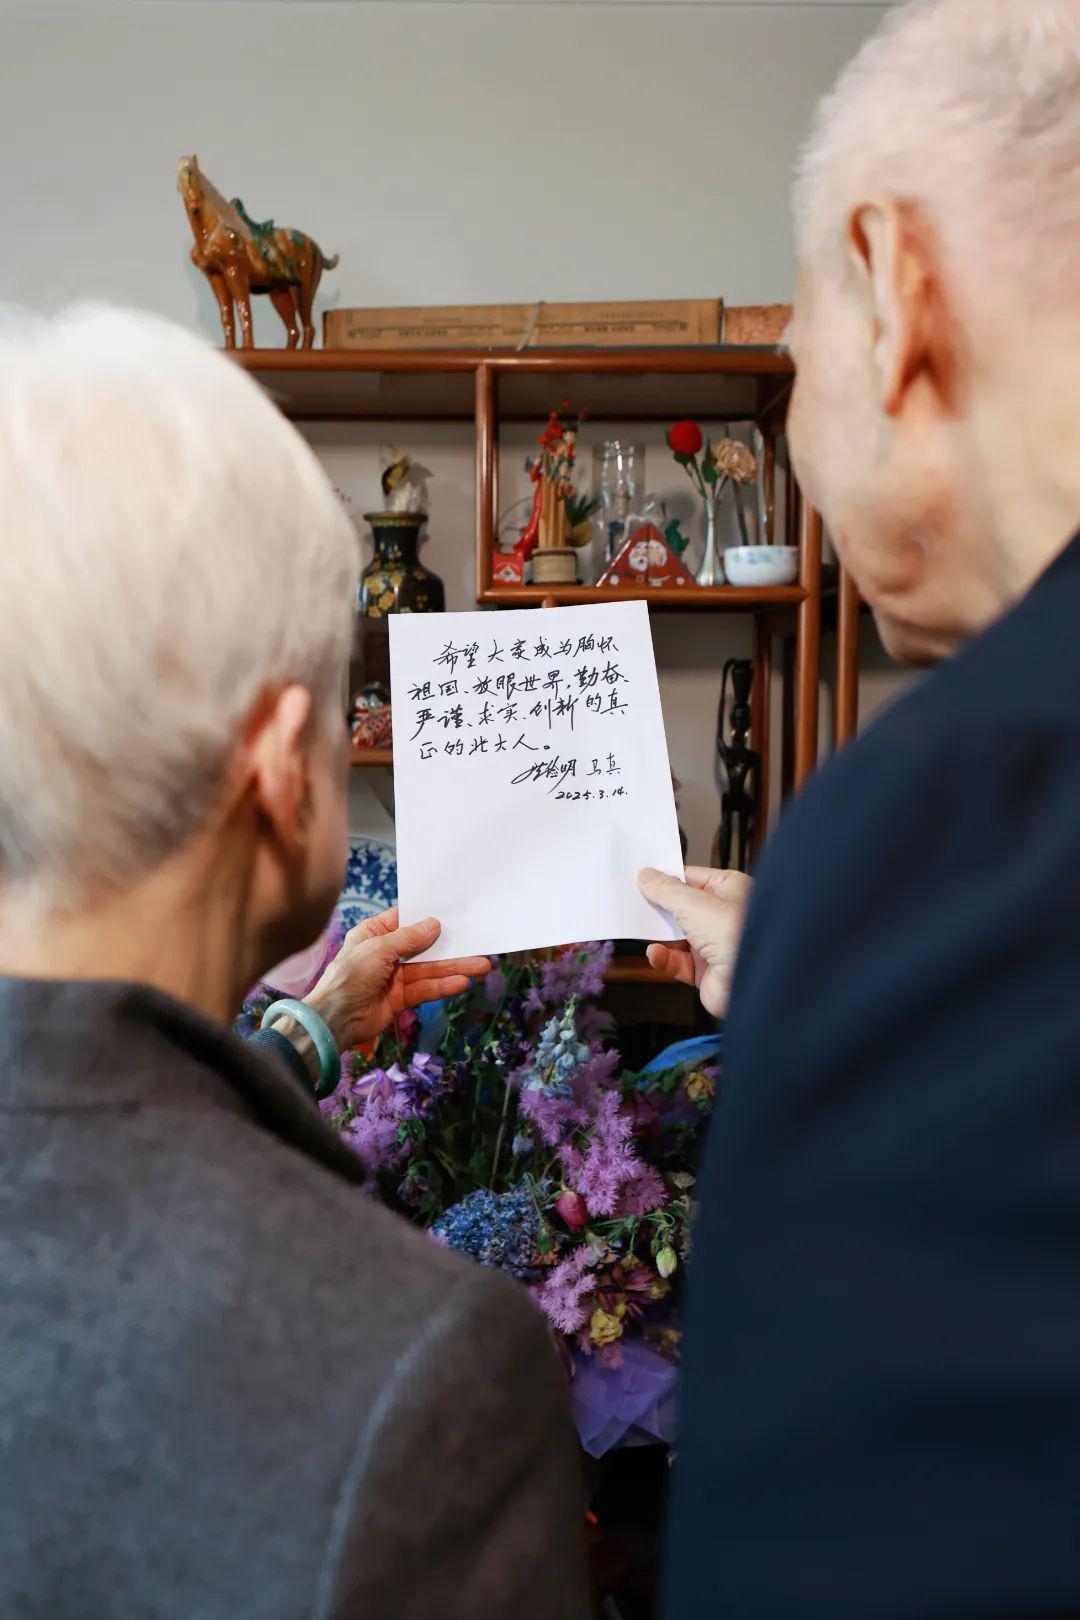 希望大家成为胸怀
祖国、放眼世界,勤奋、
严谨、求实、创新的真
正的北大人。
马真
2025.3.14.